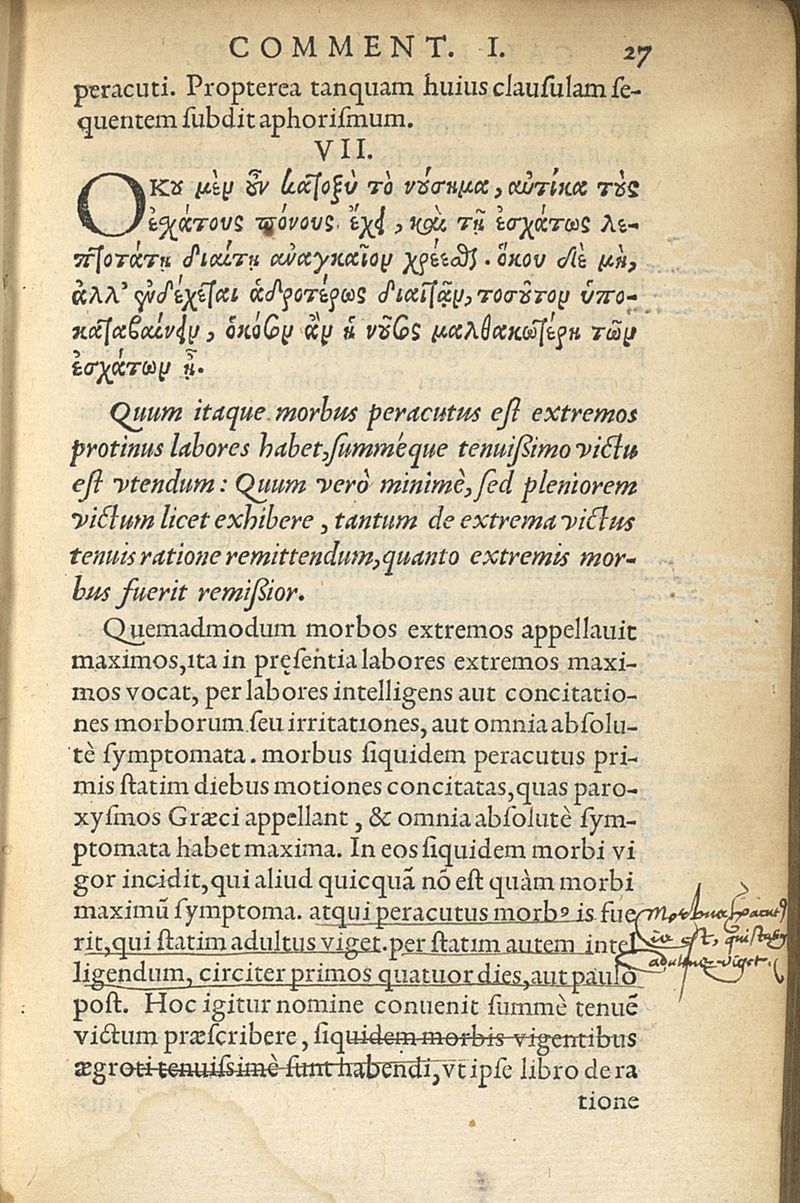 COMMENT. I. 27
peracuti. Propterea tanquam huius clauſulam ſe-
quentem ſubdit aphoriſmum.
VII.
Οκου μὲν οὖν κάτοξυ τὸ νούσημα, αὐτίκα τοὺς
ἐσχάτους πόνους ἔχει, καὶ τῇ ἐσχάτως λε-
πτοτάτη διαίτη ἀναγκαῖον χρέεσθαι. ὅκου δὲ μὴ,
ἀλλ' ἐνδέχεται ἁδροτέρως διαιτᾷν, τοσοῦτον ὑπο-
καταβαίνειν, ὁκόσον ἂν ἡ νοῦσος μαλθακωτέρη τῶν
ἐσχάτων ᾖ.
Quum itaque morbus peracutus eſt extremos
protinus labores habet, ſumméque tenuißimo victu
eſt vtendum: Quum verò minimè, ſed pleniorem
victum licet exhibere, tantum de extrema victus
tenuis ratione remittendum, quanto extremis mor-
bus fuerit remißior.
Quemadmodum morbos extremos appellauit
maximos, ita in pręſentia labores extremos maxi-
mos vocat, per labores intelligens aut concitatio-
nes morborum ſeu irritationes, aut omnia abſolu-
tè ſymptomata. morbus ſiquidem peracutus pri-
mis ſtatim diebus motiones concitatas, quas paro-
xyſmos Græci appellant, & omnia abſolutè ſym-
ptomata habet maxima. In eos ſiquidem morbi vi
gor incidit, qui aliud quicquā nō eſt quàm morbi
maximū ſymptoma. atqui peracutus morbꝰ is fue
rit, qui ſtatim adultus viget. per ſtatim autem intel
ligendum, circiter primos quatuor dies, aut paulo
poſt. Hoc igitur nomine conuenit ſummè tenuē
victum præſcribere, ſiquidem morbis vigentibus
ægroti tenuiſsimè ſunt habendi, vt ipſe libro de ra
tione
Morbus
est, qui statim
adultus viget.